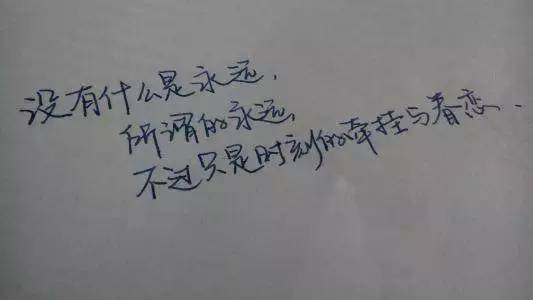 没有什么是永远，
所谓的永远，
不过只是时刻的牵挂与眷恋．